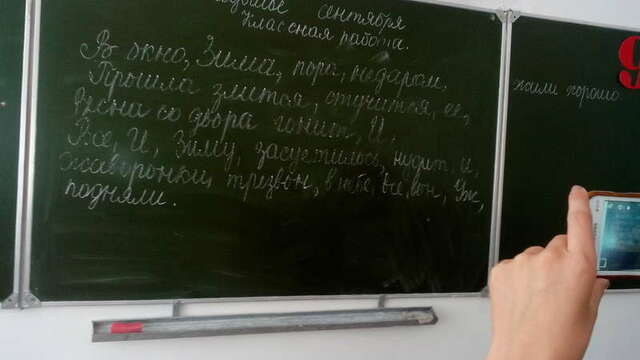 сентября
Классная работа.
В окно, Зима, пора, недаром,
Прошла злится, стучится, ее,
Весна со двора гонит, И,
Все, И, Зиму, засуетилось, нудит, и,
Жаворонки, трезвон, в небе, вон, Уж,
подняли.
жили хорошо.
9